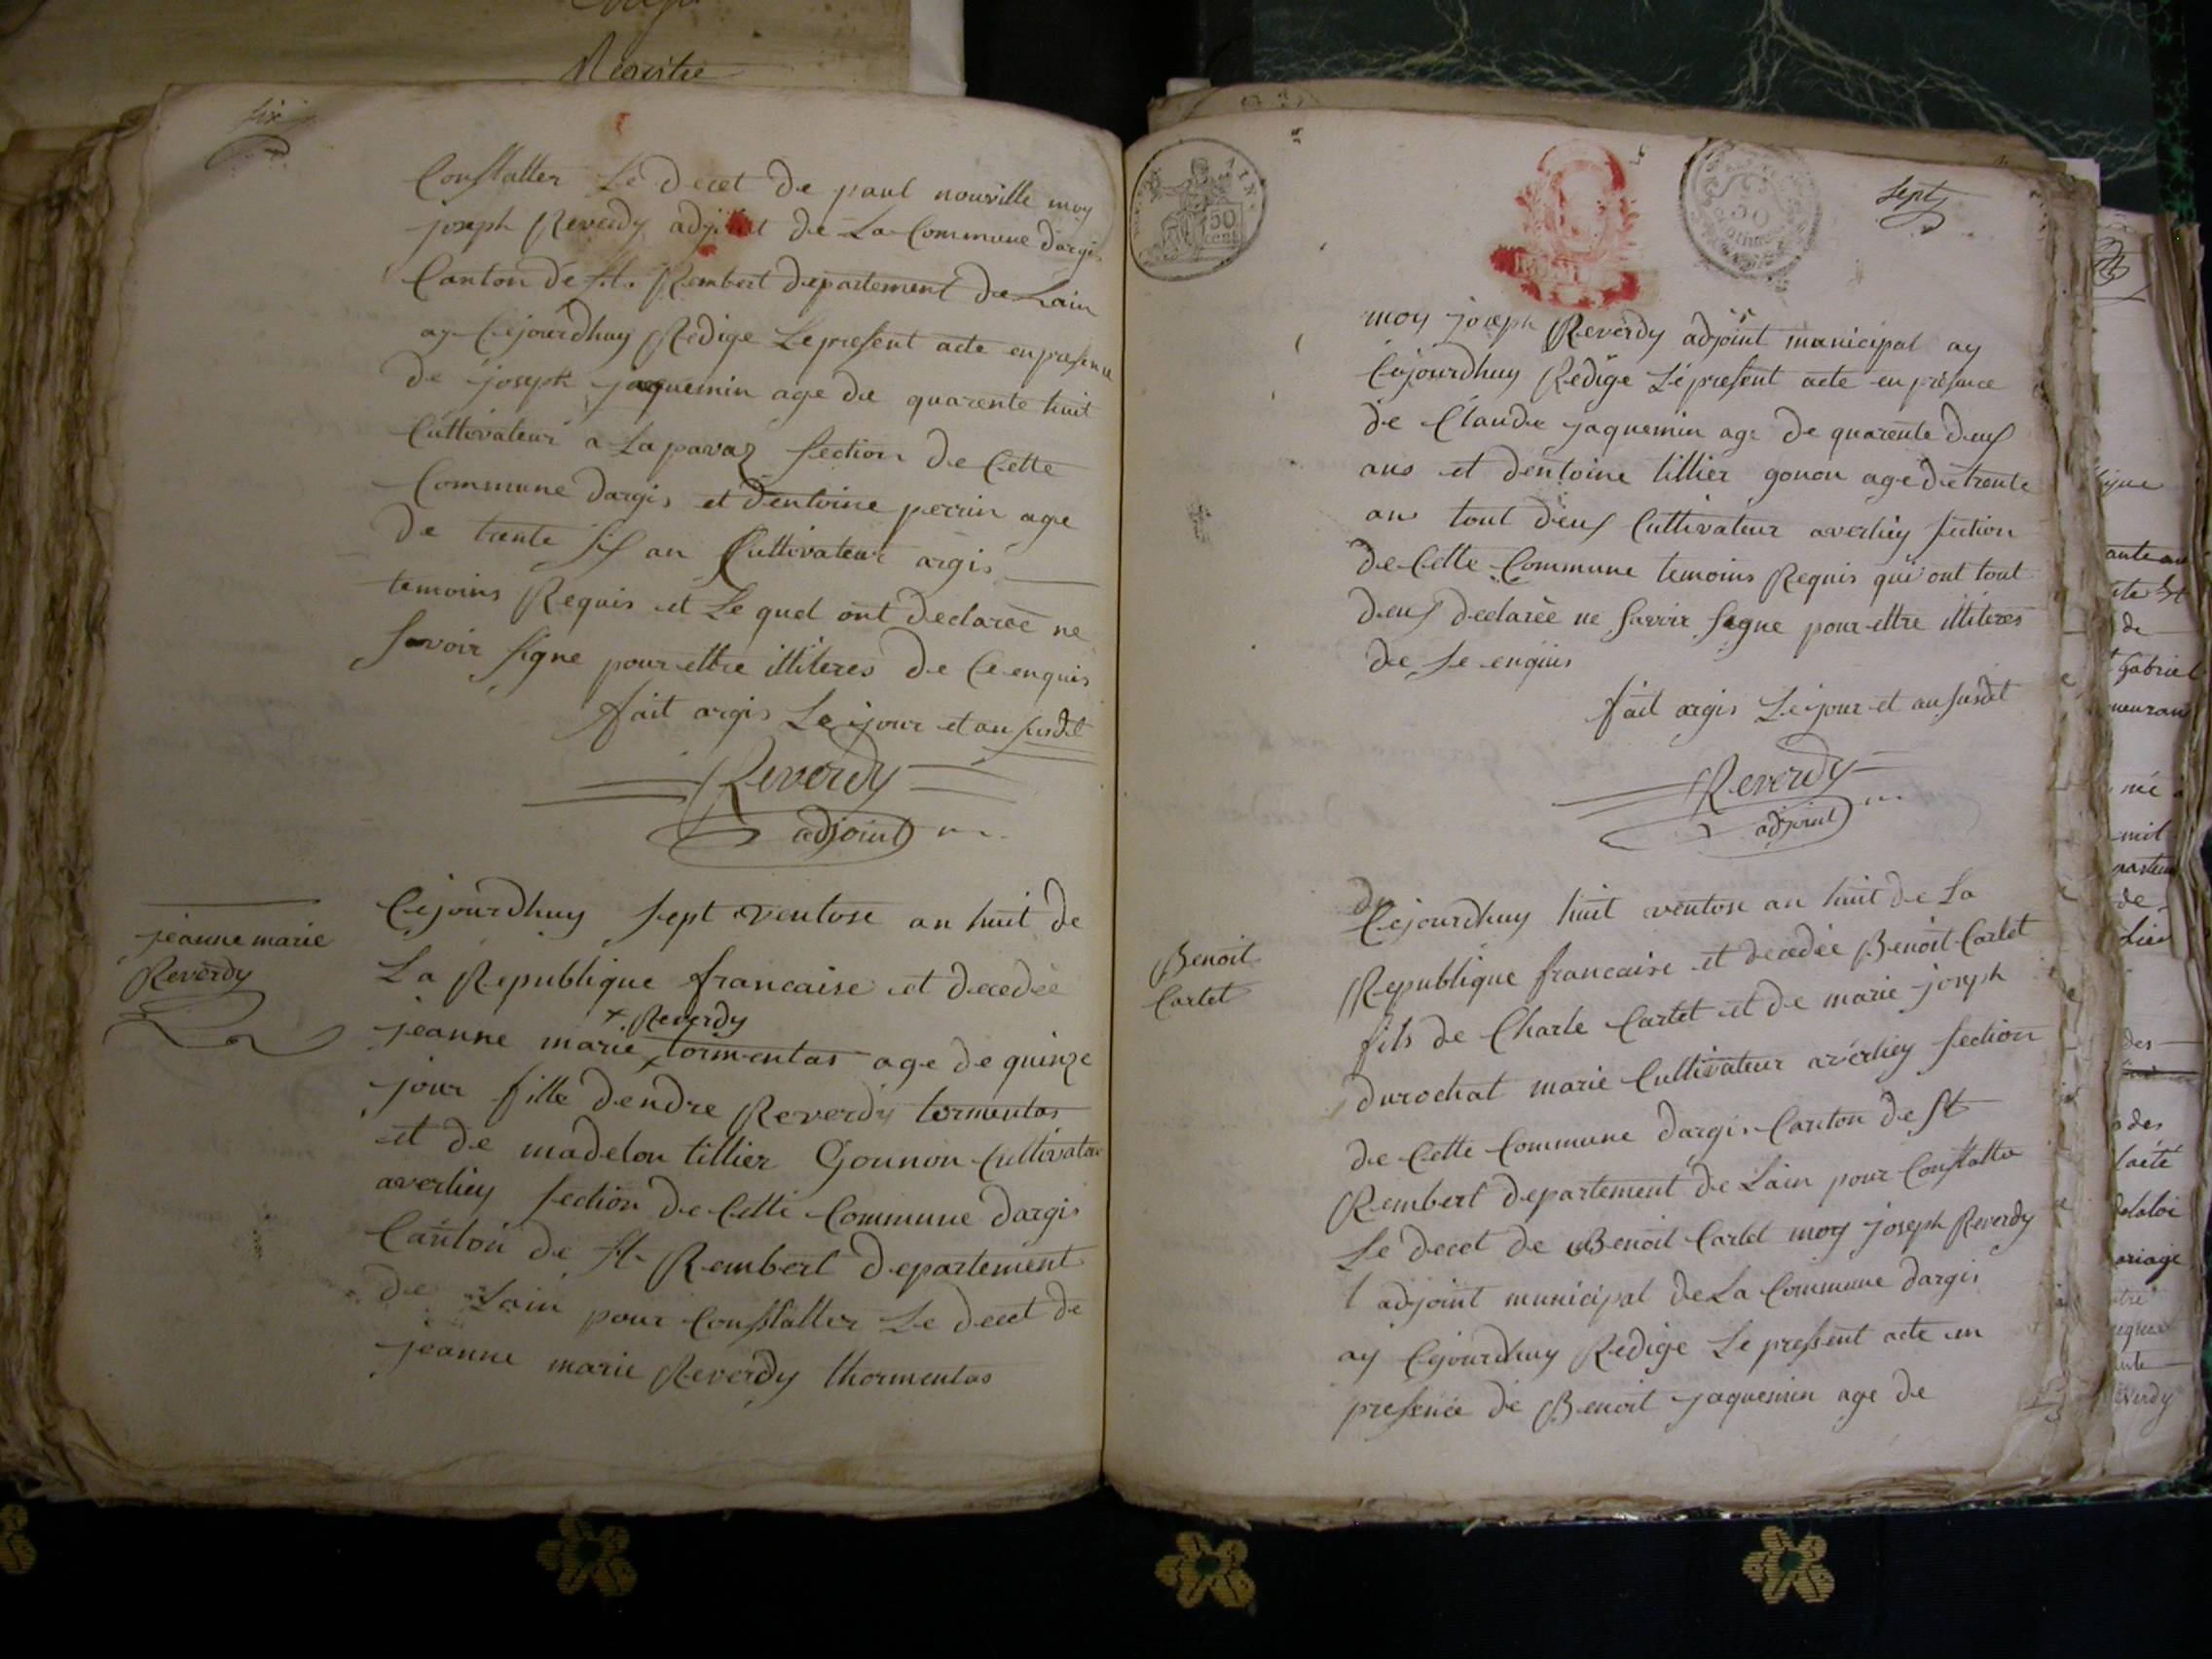 Registre
six
Constatter Le decet de paul nouville moy
joseph Reverdy adjoint de La Commune dargis
Canton de st. Rembert departement de Lain
ay Cejourdhuy Redige Le present acte en presence
de joseph jaquemin age de quarente huit
Cultivateur a La pavaz section de Cette
Commune dargis et dentoine perrin age
de trente six an Cultivateur argis
temoins Requis et Le quel ont declarée ne
Savoir signe pour ettre illiteres de Ce enquis
fait argis Le jour et an susdit
Reverdy
adjoint
jeanne marie
Reverdy
Cejourdhuy sept ventose an huit de
La Republique francaise et decedée
+ Reverdy
jeanne marie + tormentas age de quinze
jour fille dendre Reverdy tormentas
et de madelon tillier Gounon Cultivateur
averliey section de Cette Commune dargis
Canton de st Rembert departement
de Lain pour Constatter Le decet de
jeanne marie Reverdy thormentas
50
cent
50
sept
moy joseph Reverdy adjoint municipal ay
Cejourdhuy Redige Le present acte en présence
de Claude jaquemin age de quarente deux
ans et dentoine tillier gonon age de trente
an tout deux Cultivateur averliey section
de Cette Commune temoins Requis qui ont tout
deux declarée ne Savoir signe pour ettre illiteres
de se enquis
fait argis Le jour et an susdit
Reverdy
adjoint
Benoit
Cartet
du
Cejourdhuy huit ventose an huit de La
Republique francaise et decedée Benoit Cartet
fils de Charle Cartet et de marie joseph
durochat marie Cultivateur averliey section
de Cette Commune dargis Canton de St
Rembert departement de Lain pour Constatter
Le decet de Benoit Cartet moy joseph Reverdy
adjoint municipal de La Commune dargis
ay Cejourdhuy Redige Le present acte en
presence de Benoit jaquemin age de